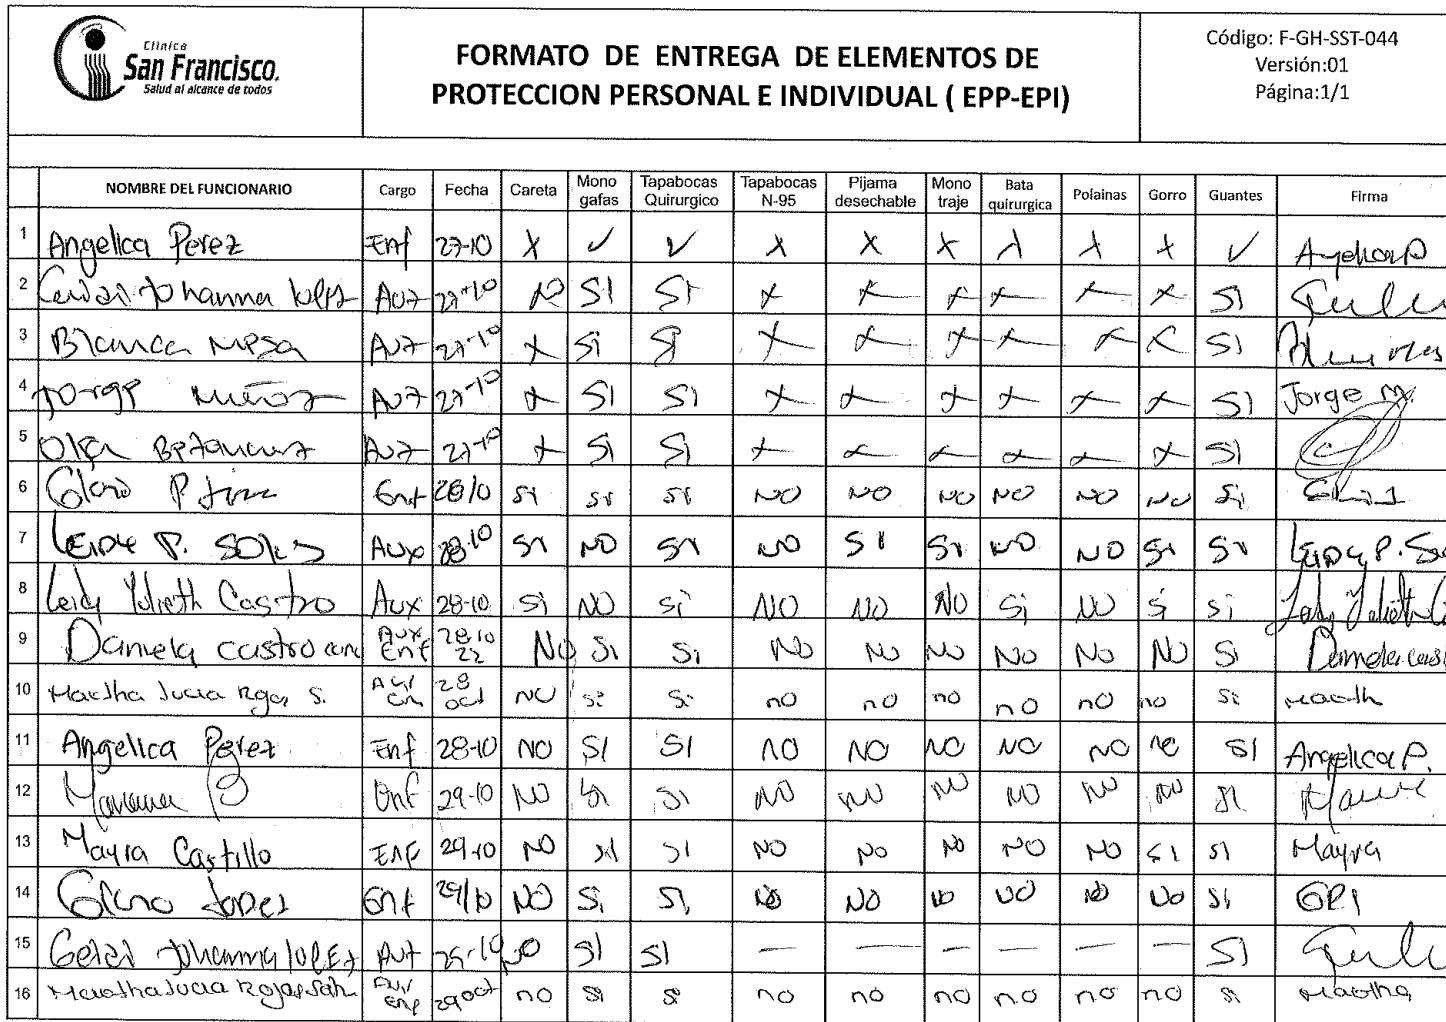 Clínica
San Francisco.
Salud al alcance de todos
FORMATO DE ENTREGA DE ELEMENTOS DE
PROTECCION PERSONAL E INDIVIDUAL ( EPP-EPI)
Código: F-GH-SST-044
Versión:01
Página:1/1
NOMBRE DEL FUNCIONARIO Cargo Fecha Careta Mono gafas Tapabocas Quirurgico Tapabocas N-95 Pijama desechable Mono traje Bata quirurgica Polainas Gorro Guantes Firma
1 Angelica Perez Enf 27-10 X ✓ ✓ X X X X X X ✓ Angelica P
2 Johanna Aux 27-10 NO SI SI X X X X X X SI
3 Blanca Mesa Aux 27-10 X Si Si X X X X X X SI
4 Jorge Muñoz Aux 27-10 X SI SI X X X X X X SI Jorge M.
5 Olga Betancurt Aux 27-10 X Si Si X X X X X X SI
6 P. Enf 28/10 Si Si Si NO NO NO NO NO NO Si
7 Leidy P. Solis Aux 28-10 SI NO SI NO SI SI NO NO SI SI Leidy P.
8 Leidy Yulieth Castro Aux 28-10 Si NO Si NO NO NO Si NO Si Si Leidy Yulieth
9 Daniela castro Aux Enf 28-10 22 No Si Si No No No No No No Si Daniela
10 Martha lucia Rojas S. Aux Enf 28 oct NO si si no no no no no no si Martha
11 Angelica Perez Enf 28-10 NO SI SI NO NO NO NO NO NO SI Angelica P.
12 Enf 29-10 NO Si SI NO NO NO NO NO NO SI
13 Mayra Castillo Enf 29-10 NO SI SI NO NO NO NO NO SI SI Mayra
14 Lopez Enf 29/10 NO Si SI NO NO NO NO NO NO Si
15 Johanna lopez Aux 29-10 NO SI SI — — — — — — SI
16 Martha lucia Rojas Aux Enf 29 oct no si si no no no no no no si Martha